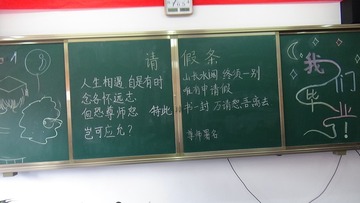 请假条
人生相遇 自是有时
念各怀远志
但恐尊师怨 特此
岂可应允？
山长水阔 终须一别
书一封 万请您吾离去
学年署名
我
们
毕
业